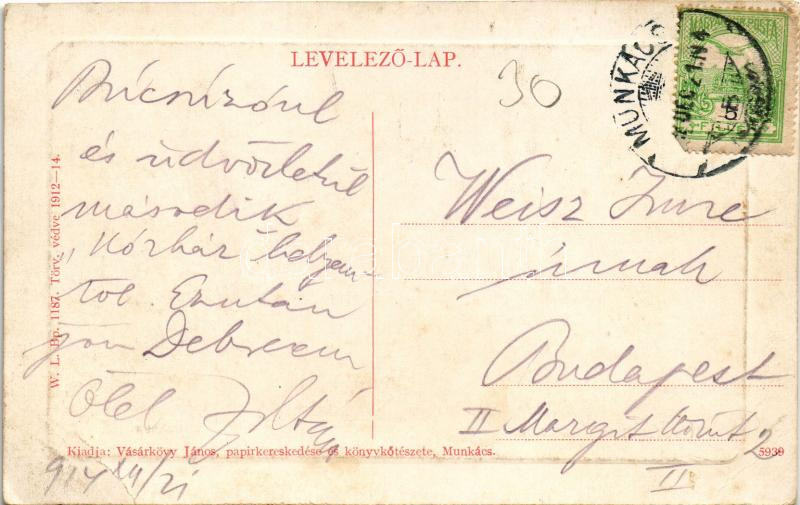 LEVELEZŐ-LAP.
30
MUNKÁCS
MAGYAR KIR. POSTA
Búcsúzóul
és üdvözletül
második
"Kórház helyem-
től. Ezután
jön Debrecen
Ölel Zoltán
914 XII/21
Weisz Imre
úrnak
Budapest
II Margit körút 2
II
W. L. Bp. 1187. Törv. védve 1912—14.
Kiadja: Vásárkövy János, papirkereskedése és könyvkötészete, Munkács.
5939